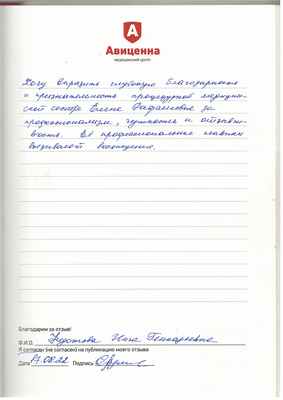 Авиценна
медицинский центр
Хочу выразить глубокую благодарность
и признательность процедурной медицин-
ской сестре Елене Рафаиловне за
профессионализм, чуткость и отзывчи-
вость. Её профессиональные навыки
вызывают восхищение.
Благодарим за отзыв!
Ф.И.О.
Я согласен (не согласен) на публикацию моего отзыва
Дата .08.22 Подпись